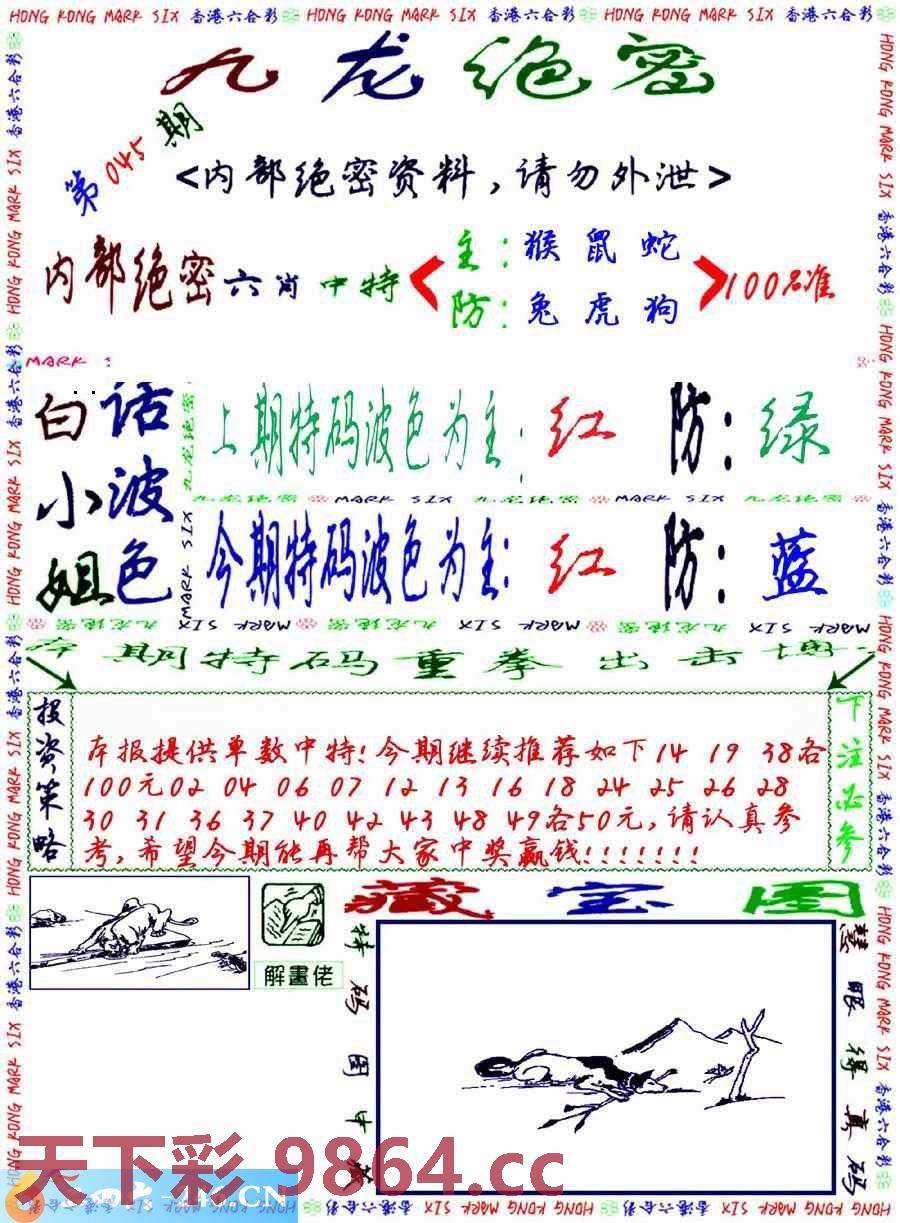 HONG KONG MARK SIX 香港六合彩 HONG KONG MARK SIX 香港六合彩 HONG KONG MARK SIX 香港六合彩
九龙绝密
第045期
<内部绝密资料,请勿外泄>
内部绝密六肖中特
主:猴 鼠 蛇
防:兔 虎 狗
100%准
MARK :
白话小波姐色
九龙绝密
上期特码波色为主: 红 防: 绿
九龙绝密 MARK SIX 九龙绝密 MARK SIX 九龙绝密
MARK SIX
今期特码波色为主: 红 防: 蓝
MARK SIX 九龙绝密 MARK SIX 九龙绝密 MARK SIX 九龙绝密
本期特码重拳出击
投资策略
本报提供单数中特!今期继续推荐如下14 19 38各
100元02 04 06 07 12 13 16 18 24 25 26 28
30 31 36 37 40 42 43 48 49各50元,请认真参
考,希望今期能再帮大家中奖赢钱!!!!!!!
下注必参
藏宝图
解畫佬
特码图中藏
慧眼得真码
天下彩.9864.cc
HONG KONG MARK SIX 香港六合彩